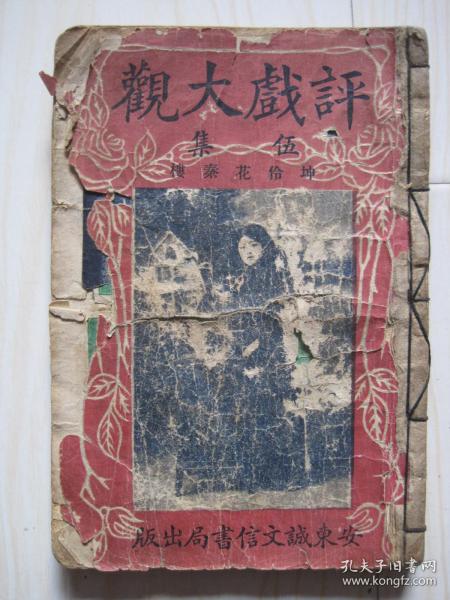 評戲大觀
伍集
坤伶花秦樓
安東誠文信書局出版
孔夫子旧书网
www.kongfz.com